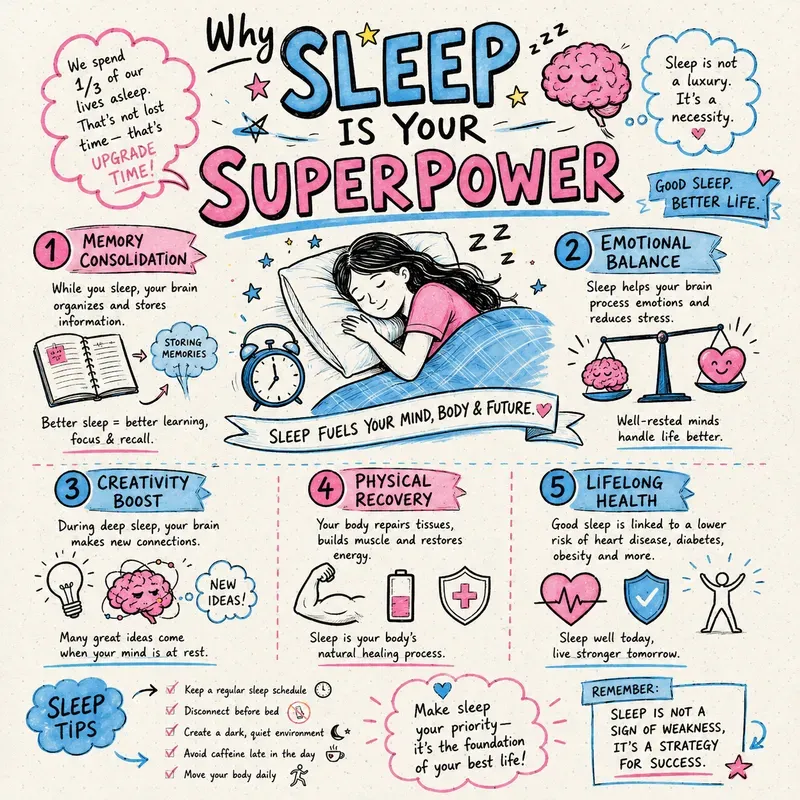 We spend
1/3 of our
lives asleep.
That's not lost
time— that's
UPGRADE
TIME!
Why
SLEEP
IS YOUR
SUPERPOWER
zzz
Sleep is not
a luxury.
It's a
necessity.
GOOD SLEEP.
BETTER LIFE.
1 MEMORY
CONSOLIDATION
While you sleep, your brain
organizes and stores
information.
STORING
MEMORIES
Better sleep = better learning,
focus & recall.
zzz
SLEEP FUELS YOUR MIND, BODY & FUTURE.
2 EMOTIONAL
BALANCE
Sleep helps your brain
process emotions and
reduces stress.
Well-rested minds
handle life better.
3 CREATIVITY
BOOST
During deep sleep, your brain
makes new connections.
NEW
IDEAS!
Many great ideas come
when your mind is at rest.
4 PHYSICAL
RECOVERY
Your body repairs tissues,
builds muscle and restores
energy.
Sleep is your body's
natural healing process.
5 LIFELONG
HEALTH
Good sleep is linked to a lower
risk of heart disease, diabetes,
obesity and more.
Sleep well today,
live stronger tomorrow.
SLEEP
TIPS
Keep a regular sleep schedule
Disconnect before bed
Create a dark, quiet environment
Avoid caffeine late in the day
Move your body daily
Make sleep
your priority—
it's the foundation
of your best life!
REMEMBER:
SLEEP IS NOT A
SIGN OF WEAKNESS,
IT'S A STRATEGY
FOR SUCCESS.